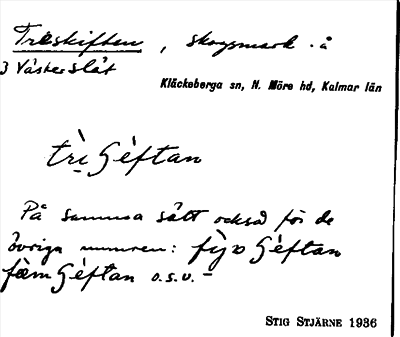 Treskiften, skogsmark å
3 Västerslät
Kläckeberga sn, N. Möre hd, Kalmar län
trì Géftan
På samma sätt också för de
övriga numren: fỳɒ Géftan
fæm Géftan o.s.v. –
STIG STJÄRNE 1936